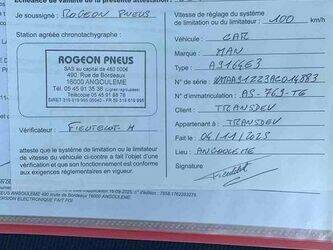 Échéance de validité de la présente attestation
Je soussigné : ROGEON PNEUS
Station agréée chronotachygraphe :
ROGEON PNEUS
SAS au capital de 460 000€
490, Rue de Bordeaux
16000 ANGOULEME
Tél. 05 45 91 35 35
Télécopie 05 45 91 88 76
Vérificateur : FIEUTELOT H
atteste que le système de limitation ou le limitateur
de vitesse du véhicule ci-contre a fait l'objet d'une
vérification et que son fonctionnement est conforme
aux exigences réglementaires en vigueur.
Vitesse de réglage du système
de limitation ou du limitateur : 100 km/h
Véhicule : CAR
Marque : MAN
Type : A91G4E3
N° de série :
N° d'immatriculation : AS-769-TG
Client : TRANSDEV
Appartenant à : TRANSDEV
Fait le : 04/11/2025
Lieu : ANGOULEME
Signature